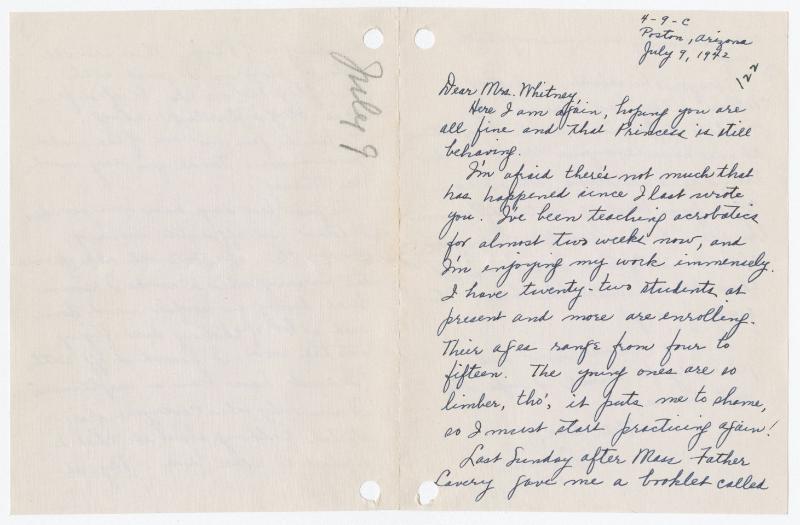 July 9
4-9-C
Poston, Arizona
July 9, 1942
122
Dear Mrs. Whitney,
Here I am again, hoping you are
all fine and that Princess is still
behaving.
I'm afraid there's not much that
has happened since I last wrote
you. I've been teaching acrobatics
for almost two weeks now, and
I'm enjoying my work immensely.
I have twenty-two students at
present and more are enrolling.
Their ages range from four to
fifteen. The young ones are so
limber, tho', it puts me to shame,
so I must start practicing again!
Last Sunday after Mass Father
Lavery gave me a booklet called